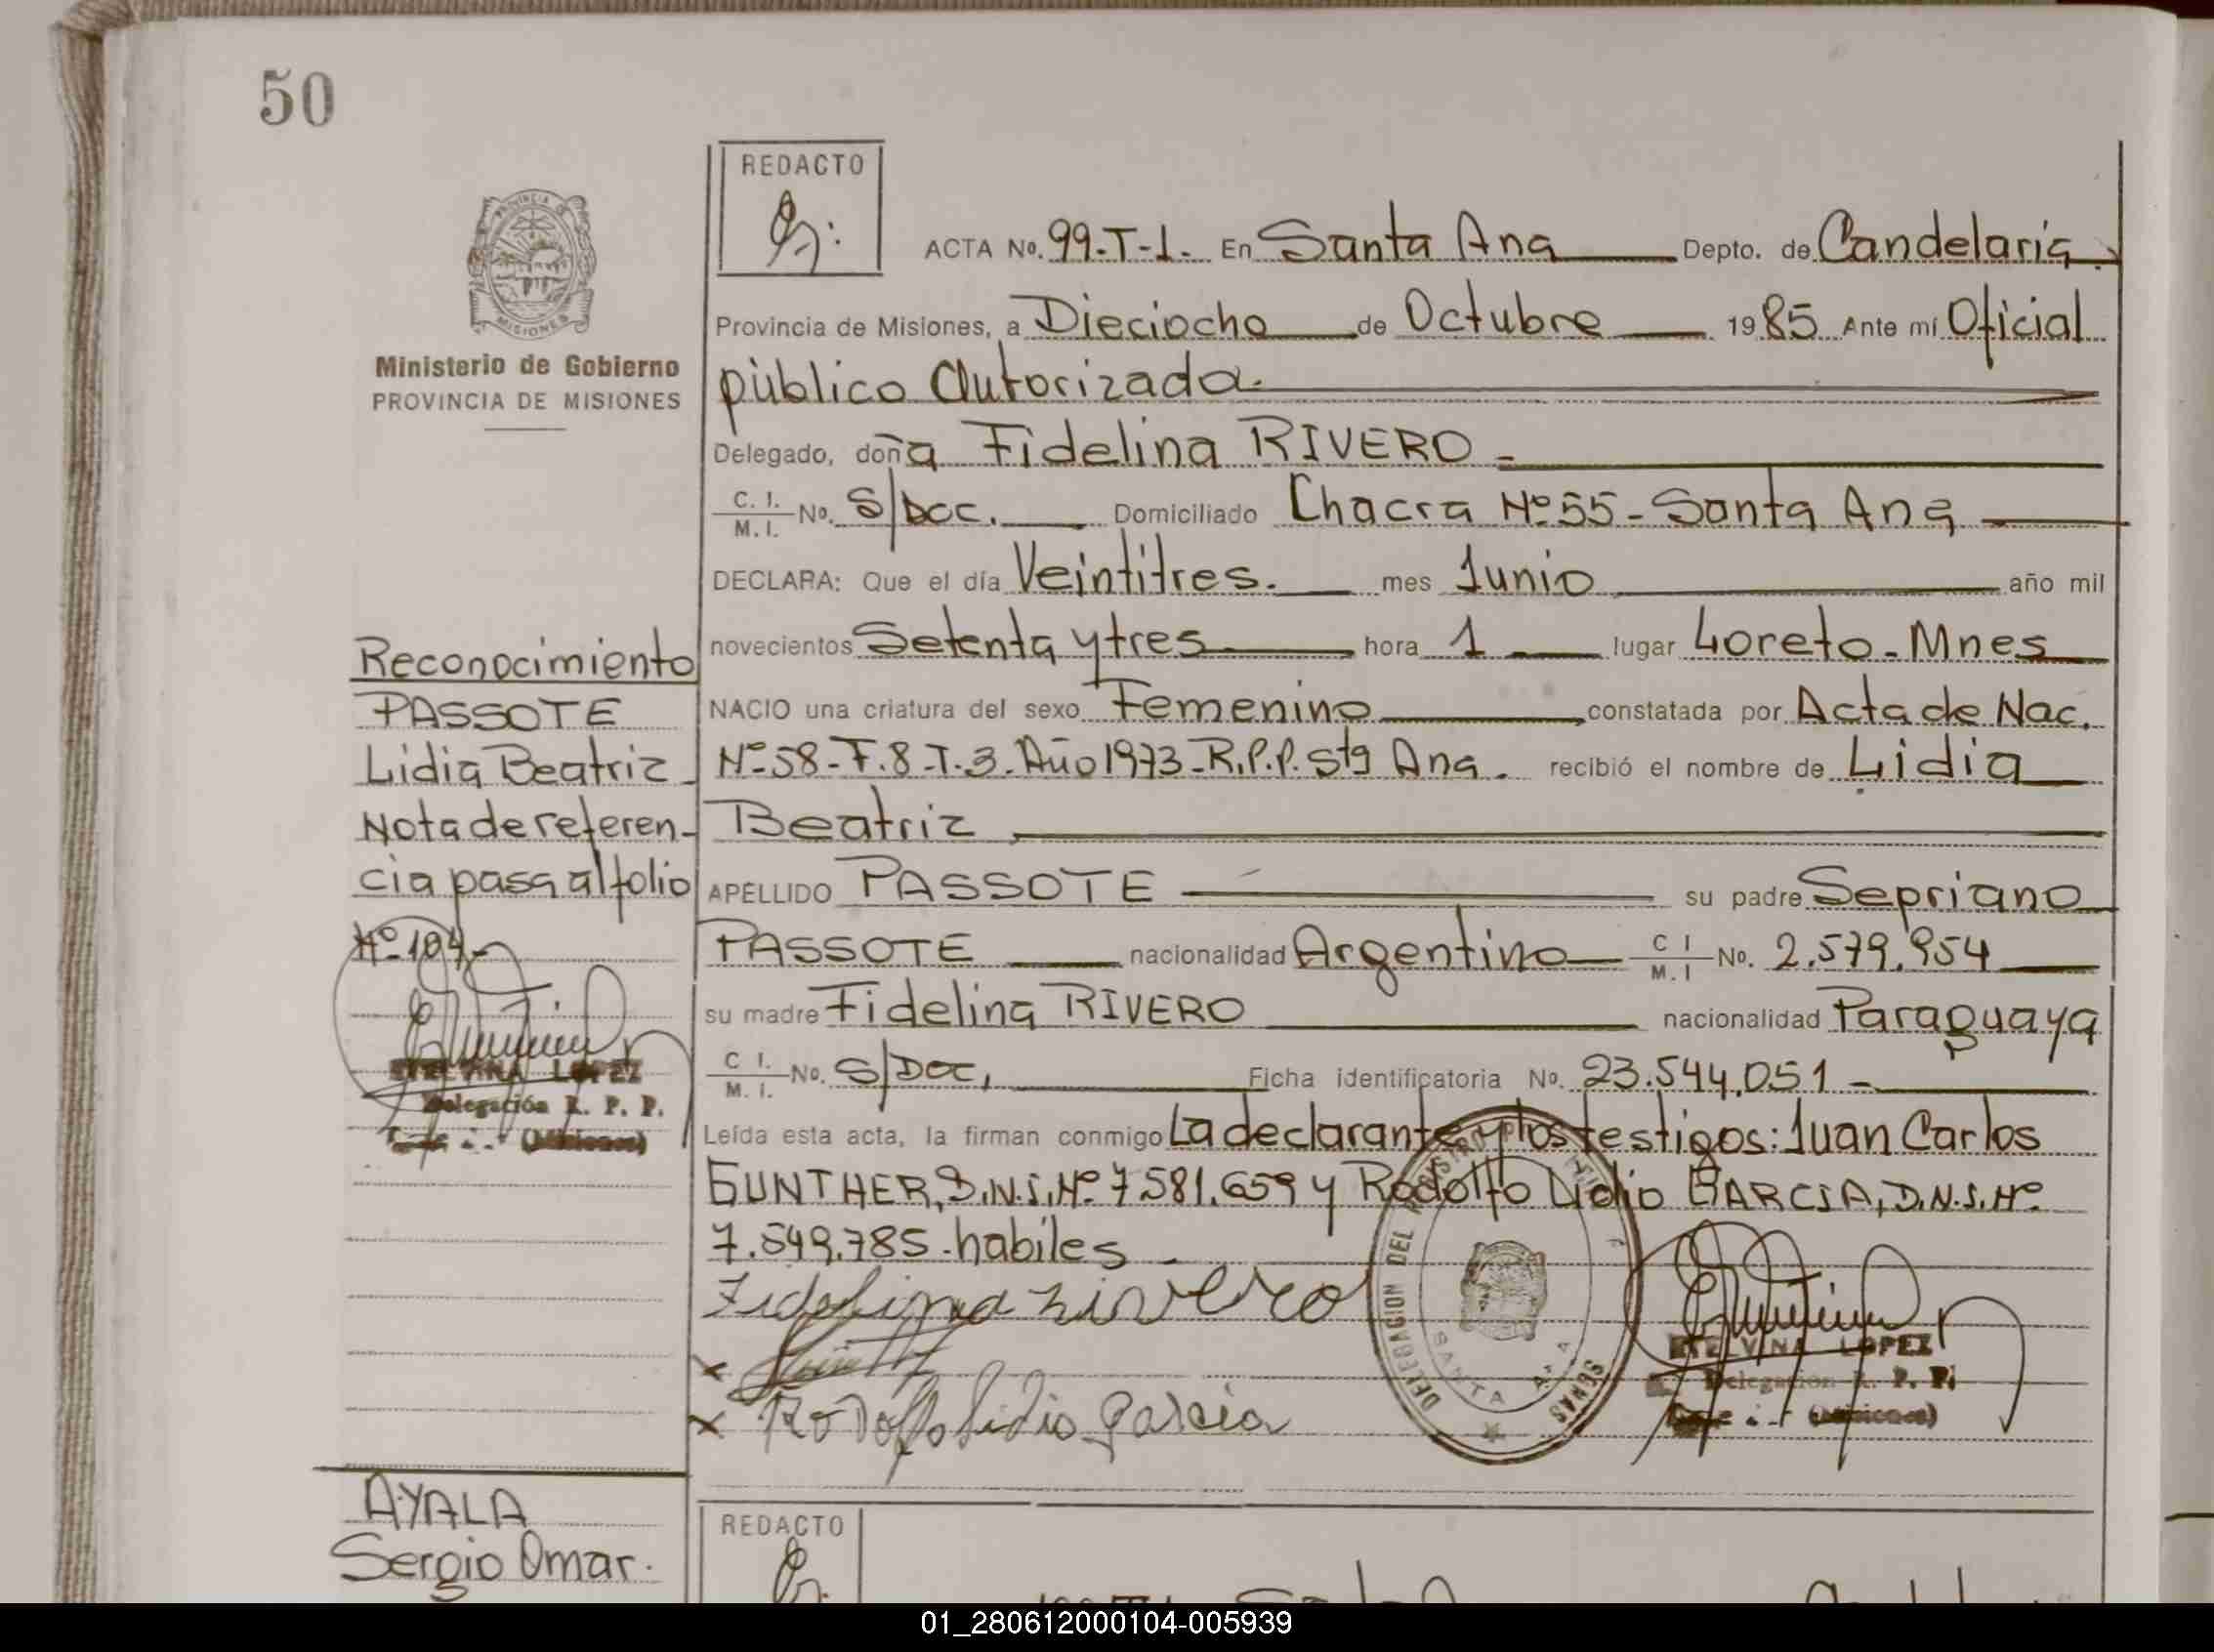 50
REDACTO
PROVINCIA DE
MISIONES
ACTA No. 99-T-1. En Santa Ana Depto. de Candelaria.
Provincia de Misiones, a Dieciocho de Octubre 1985 Ante mí Oficial
Ministerio de Gobierno
PROVINCIA DE MISIONES
público Autorizada.
Delegado, doña Fidelina RIVERO
C. I.
M. I. No. S/Doc. Domiciliado Chacra Nº55-Santa Ana
DECLARA: Que el día Veintitres. mes Junio año mil
novecientos Setenta y tres hora 1 lugar Loreto-Mnes
NACIO una criatura del sexo Femenino constatada por Acta de Nac.
Nº-58-F.8-T.3-Año1973-R.P.P. Sta Ana. recibió el nombre de Lidia
Beatriz
APELLIDO PASSOTE su padre Sepriano
PASSOTE nacionalidad Argentino C I
M. I No. 2.579.954
su madre Fidelina RIVERO nacionalidad Paraguaya
C I.
M. I. No. S/Doc, Ficha identificatoria No. 23.544.051-
Leída esta acta, la firman conmigo La declarante y los testigos: Juan Carlos
GUNTHER, D.N.I.Nº 7.581.659 y Rodolfo Lidio GARCIA, D.N.I.Nº
7.549.785-habiles
Fidelina rivero
x
x Rodolfo Lidio Garcia
DELEGACION DEL REGISTRO
SANTA ANA
ETELVINA LOPEZ
Delegación R. P. P.
(Misiones)
Reconocimiento
PASSOTE
Lidia Beatriz
Nota de referen-
cia pasa al folio
Nº-104-
ETELVINA LOPEZ
Delegación R. P. P.
(Misiones)
AYALA
Sergio Omar.
REDACTO
01_280612000104-005939